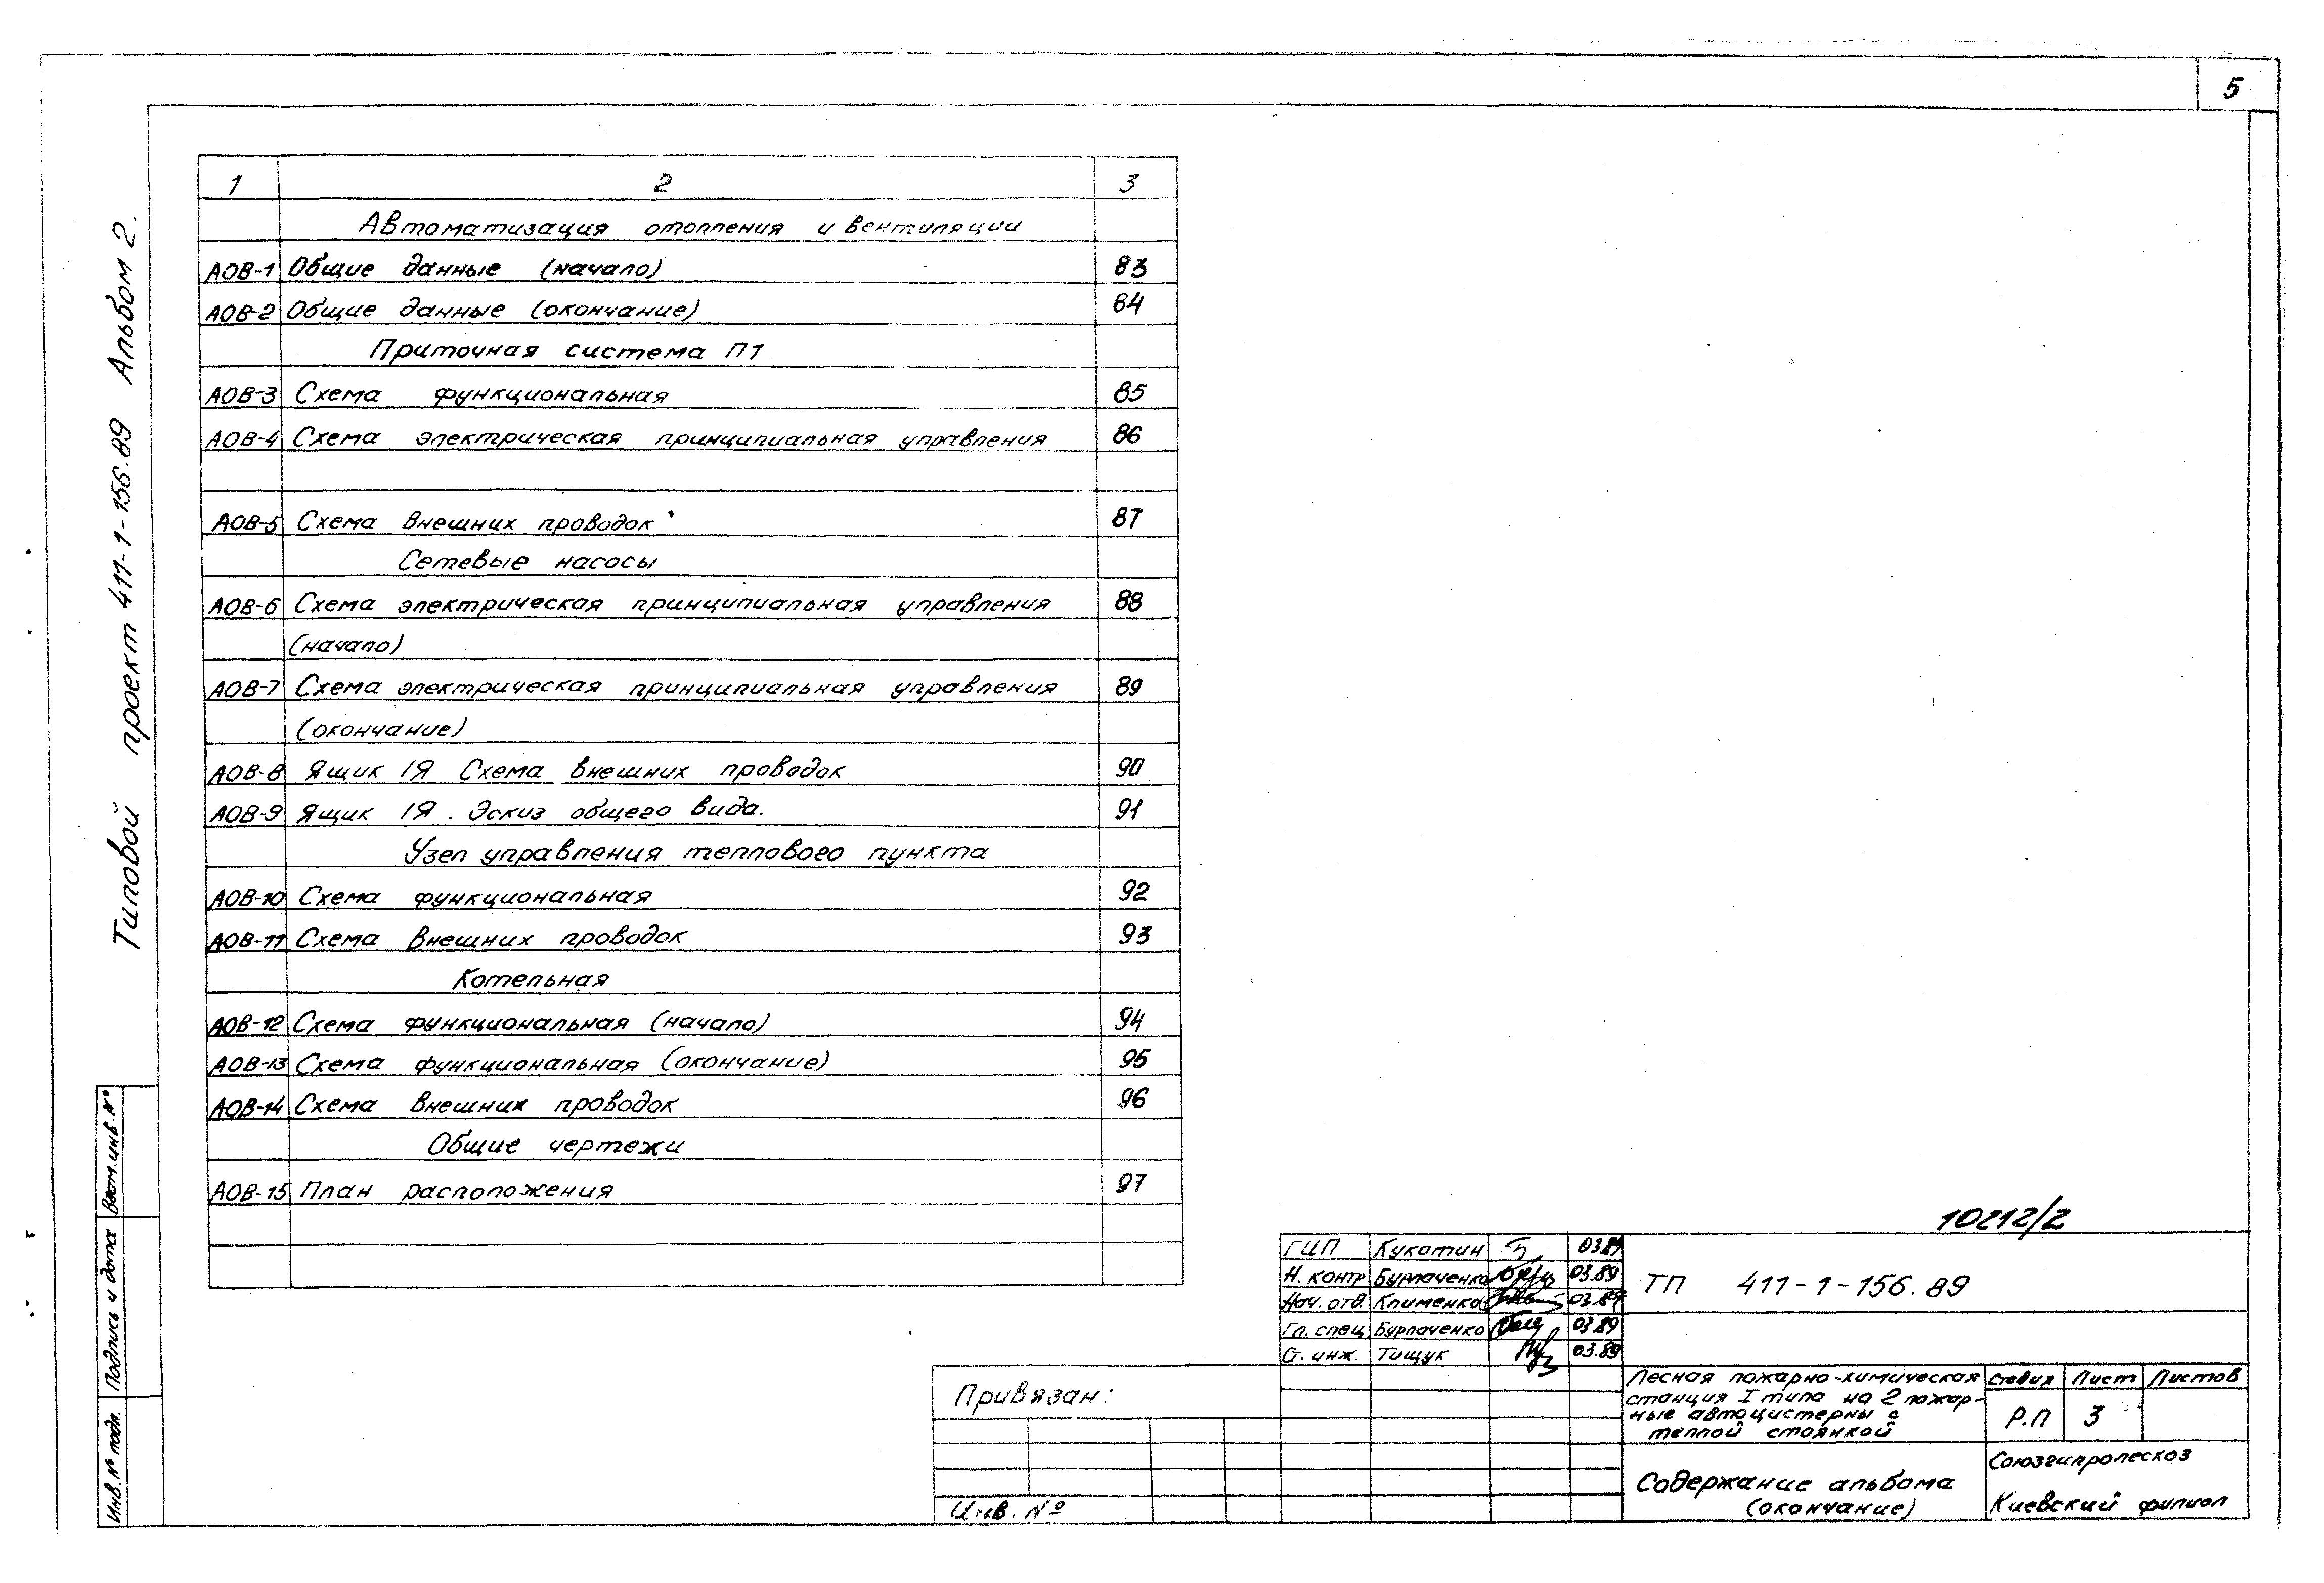 5
Типовой проект 411-1-156.89 Альбом 2.
1 2 3
Автоматизация отопления и вентиляции
АОВ-1 Общие данные (начало) 83
АОВ-2 Общие данные (окончание) 84
Приточная система П1
АОВ-3 Схема функциональная 85
АОВ-4 Схема электрическая принципиальная управления 86
АОВ-5 Схема внешних проводок 87
Сетевые насосы
АОВ-6 Схема электрическая принципиальная управления 88
(начало)
АОВ-7 Схема электрическая принципиальная управления 89
(окончание)
АОВ-8 Ящик 1Я Схема внешних проводок 90
АОВ-9 Ящик 1Я. Эскиз общего вида. 91
Узел управления теплового пункта
АОВ-10 Схема функциональная 92
АОВ-11 Схема внешних проводок 93
Котельная
АОВ-12 Схема функциональная (начало) 94
АОВ-13 Схема функциональная (окончание) 95
АОВ-14 Схема внешних проводок 96
Общие чертежи
АОВ-15 План расположения 97
Взам.инв.№
Подпись и дата
Инв.№ подл.
10212/2
ГИП Кукотин 03.89
Н. контр Бурлаченко 03.89
Нач. отд Клименко 03.89
Гл. спец Бурлаченко 03.89
Ст. инж. Тищук 03.89
ТП 411-1-156.89
Привязан:
Инв. №
Лесная пожарно-химическая
станция I типа на 2 пожар-
ные автоцистерны с
теплой стоянкой
Стадия Лист Листов
Р.П 3
Содержание альбома
(окончание)
Союзгипролесхоз
Киевский филиал